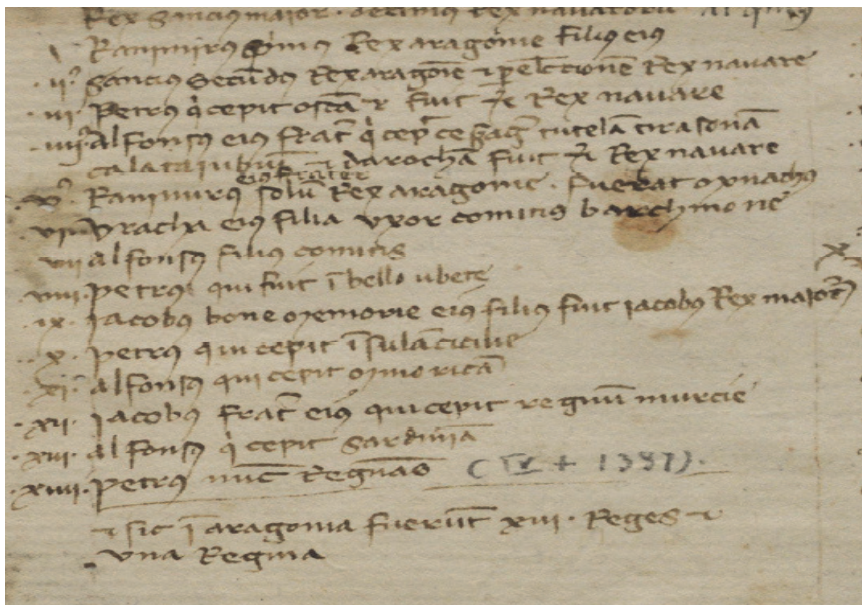 Rex sancius maior · decimus rex navarorum
i Ranimirus p̄imus Rex aragonie filius eius
· ii° · sancius secūdus Rex aragoīe ⁊ p elctionē Rex navare
· iii · Petrus q̇ cepit oscā ⁊ fuit Rex navare
· iiii° Alfonsus eius frat̄ q̇ cep̄ cesaragᷓ tutelā tirasonā
calataiubiū ⁊ darochā fuit Rex navare
eius frater
· v° · Ranimirus solū Rex aragonie · fuerat monachus
vi Vracha eius filia vxor comitis barchinone
vii alfonsus filius comitis
viii · petrus qui fuit ī bello ubete
· ix · iacobus bone memorie eius filius fuit iacobus Rex maiorᷓ
· x · petrus qui cepit īsulā cicilie
· xi · alfonsus qui cepit minoricā
· xii · iacobus frat̄ eius qui cepit regnū murcie
· xiii · alfonsus q̇ cepit sardiniā
· xiiii · petrus nūc Regnās (IV + 1387).
⁊ sic ī aragonia fuerūt xiii · Reges ⁊
una Regina